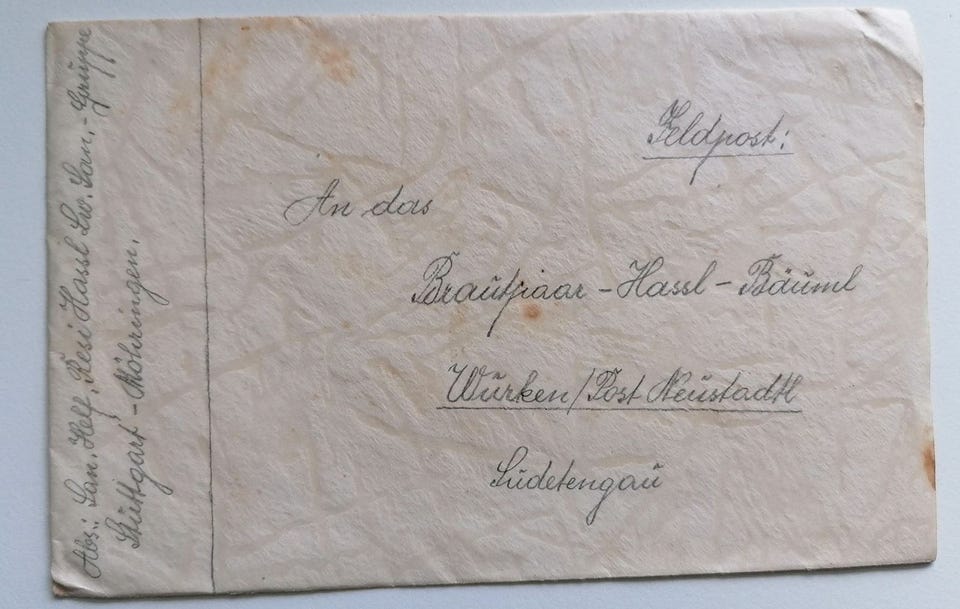 Feldpost:
An das
Brautpaar - Hassl - Bäuml
Wurken/Post Neustadtl
Sudetengau
Abs.: San. Helf. Resi Hassl Lw. San. - Gruppe
Stuttgart - Möhringen.